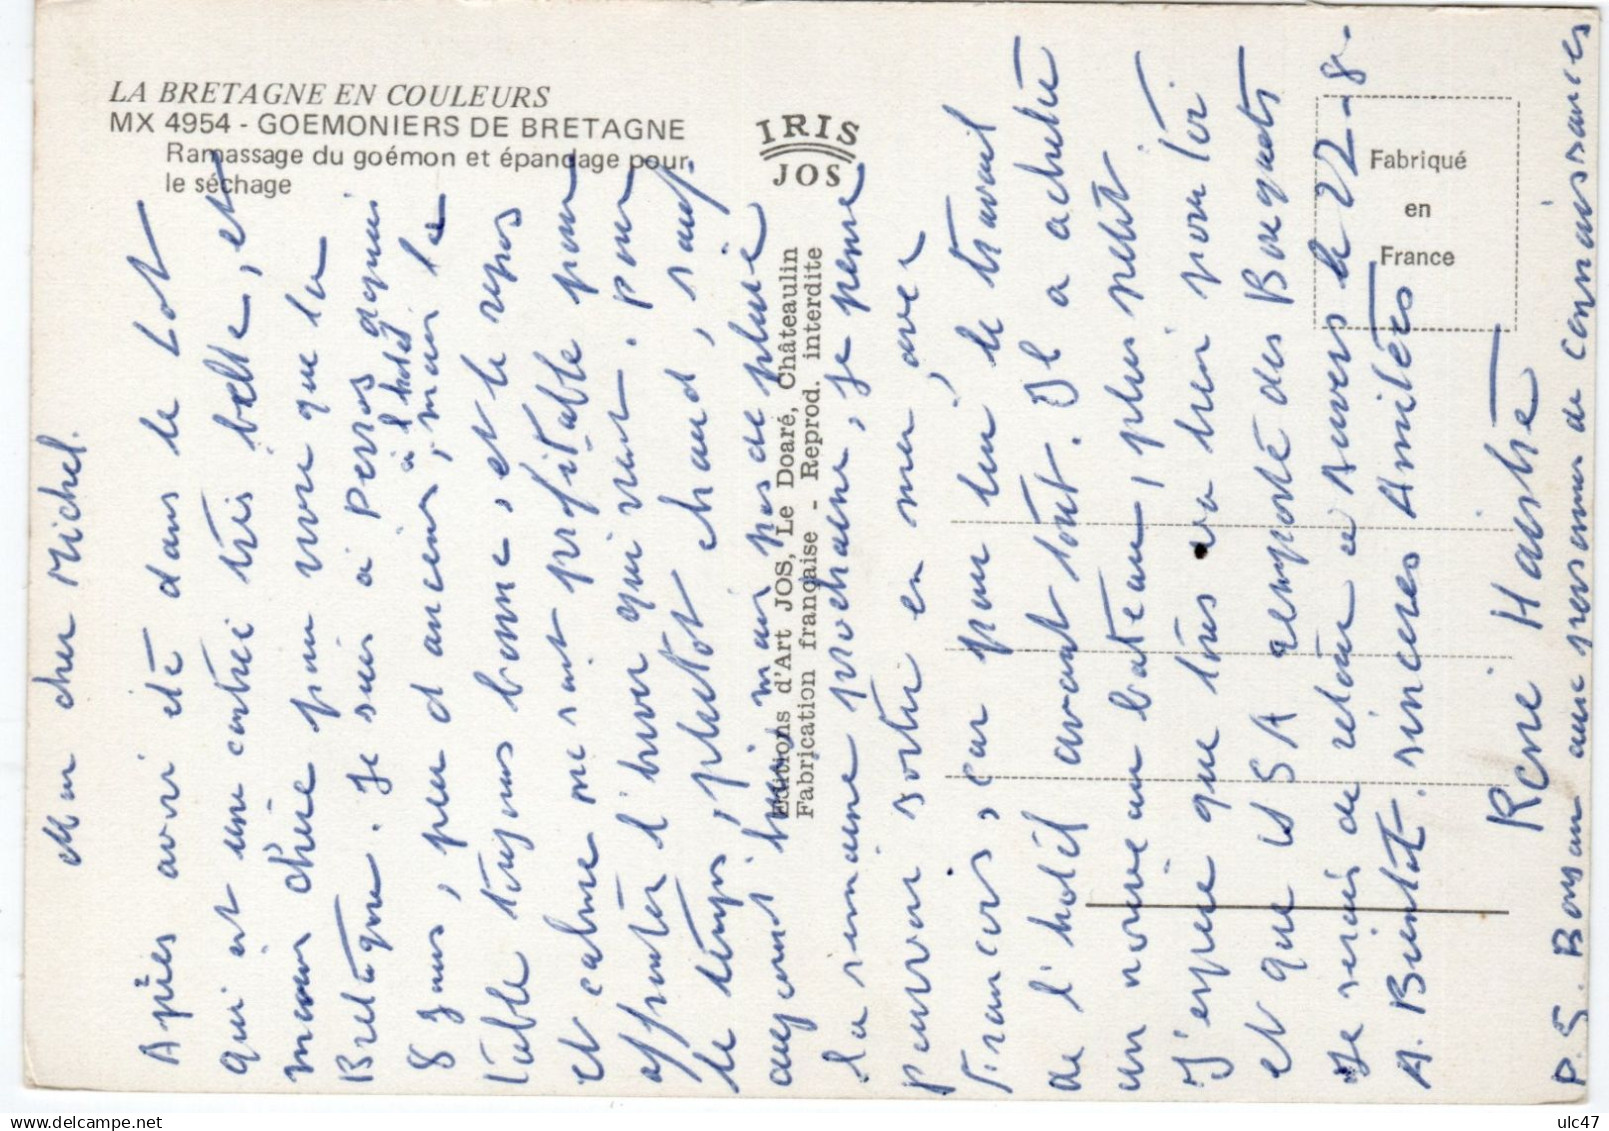 LA BRETAGNE EN COULEURS
MX 4954 - GOEMONIERS DE BRETAGNE
Ramassage du goémon et épandage pour
le séchage
IRIS
JOS
Editions d'Art JOS, Le Doaré, Châteaulin
Fabrication française - Reprod. interdite
Fabriqué
en
France
Mon cher Michel.
Après avoir été dans le Lot
qui est une contrée très belle, et
moins chère pour vivre que la
Bretagne. Je suis à Perros depuis
8 jours, peu d'anciens à l'hotel, mais la
table toujours bonne, et le repos
et calme me sont profitable pour
affronter l'hiver qui vient. Pour
le temps, plutot chaud, sauf
aujourd'hui mais pas de pluie
la semaine prochaine, je pense
pouvoir sortir en mer, avec
Francois, car pour lui le travail
de l'hotel avant tout. Il a acheté
un nouveau bateau, plus petit
J'espère que tous va bien pour toi.
et que USA remporté des Bouquets
Je serais de retour a Anvers le 22-8.
A. Bientot. sinceres Amitiées
René
P.S. Bonjour aux personnes de connaissances
ulc47